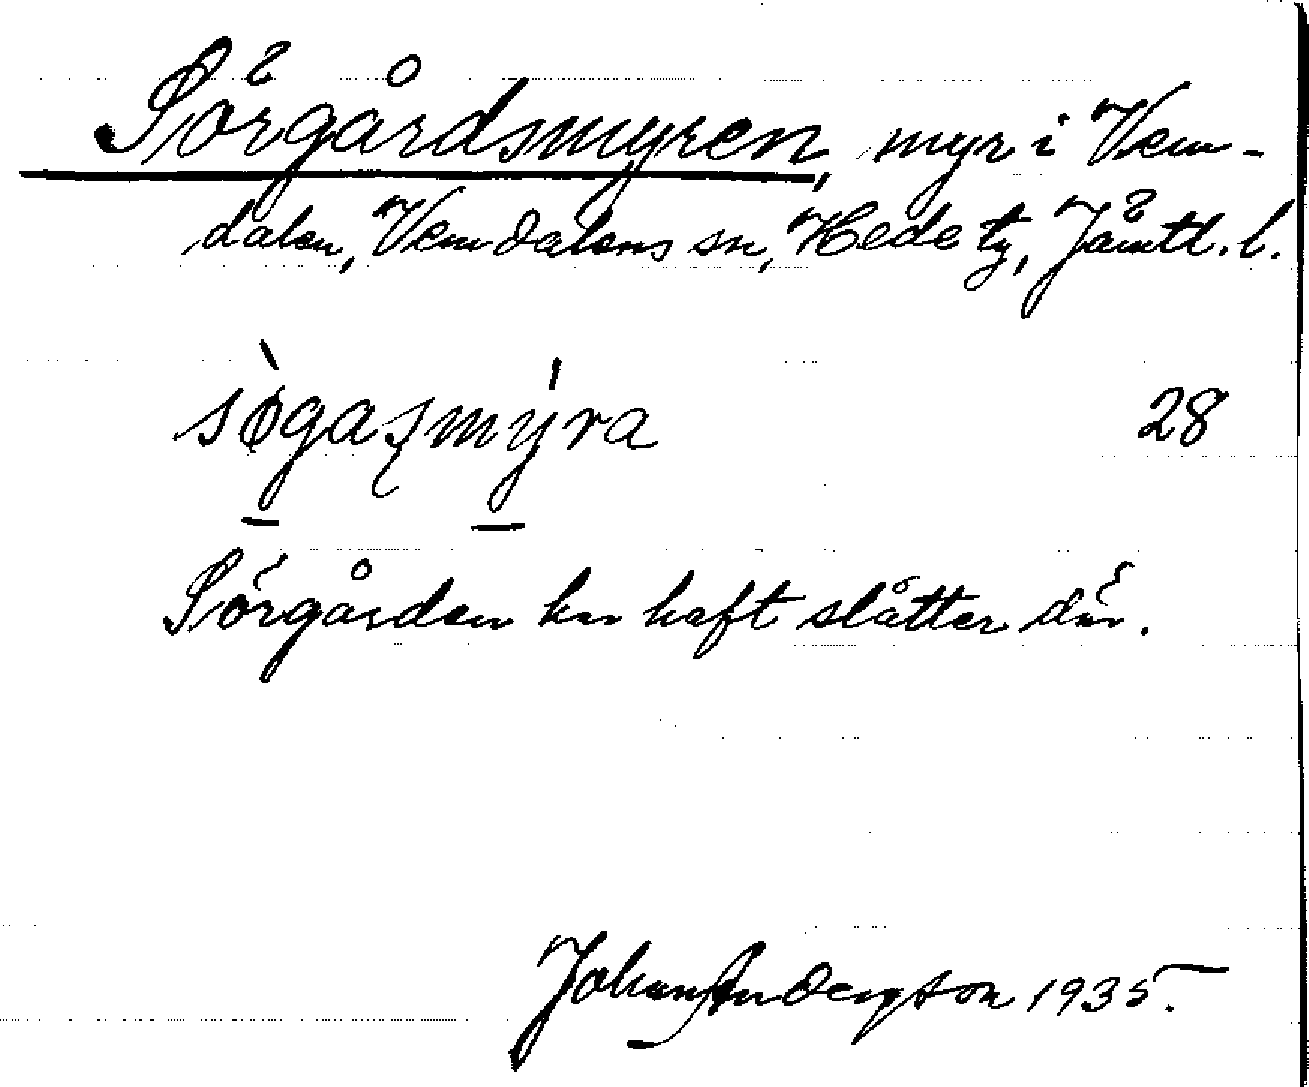 Sörgårdsmyren, myr i Vem-
dalen, Vemdalens sn, Hede tg, Jämtl. l.
sø̀gaʂmýra 28
Sörgården har haft slåtter där.
Johan Anderson 1935.